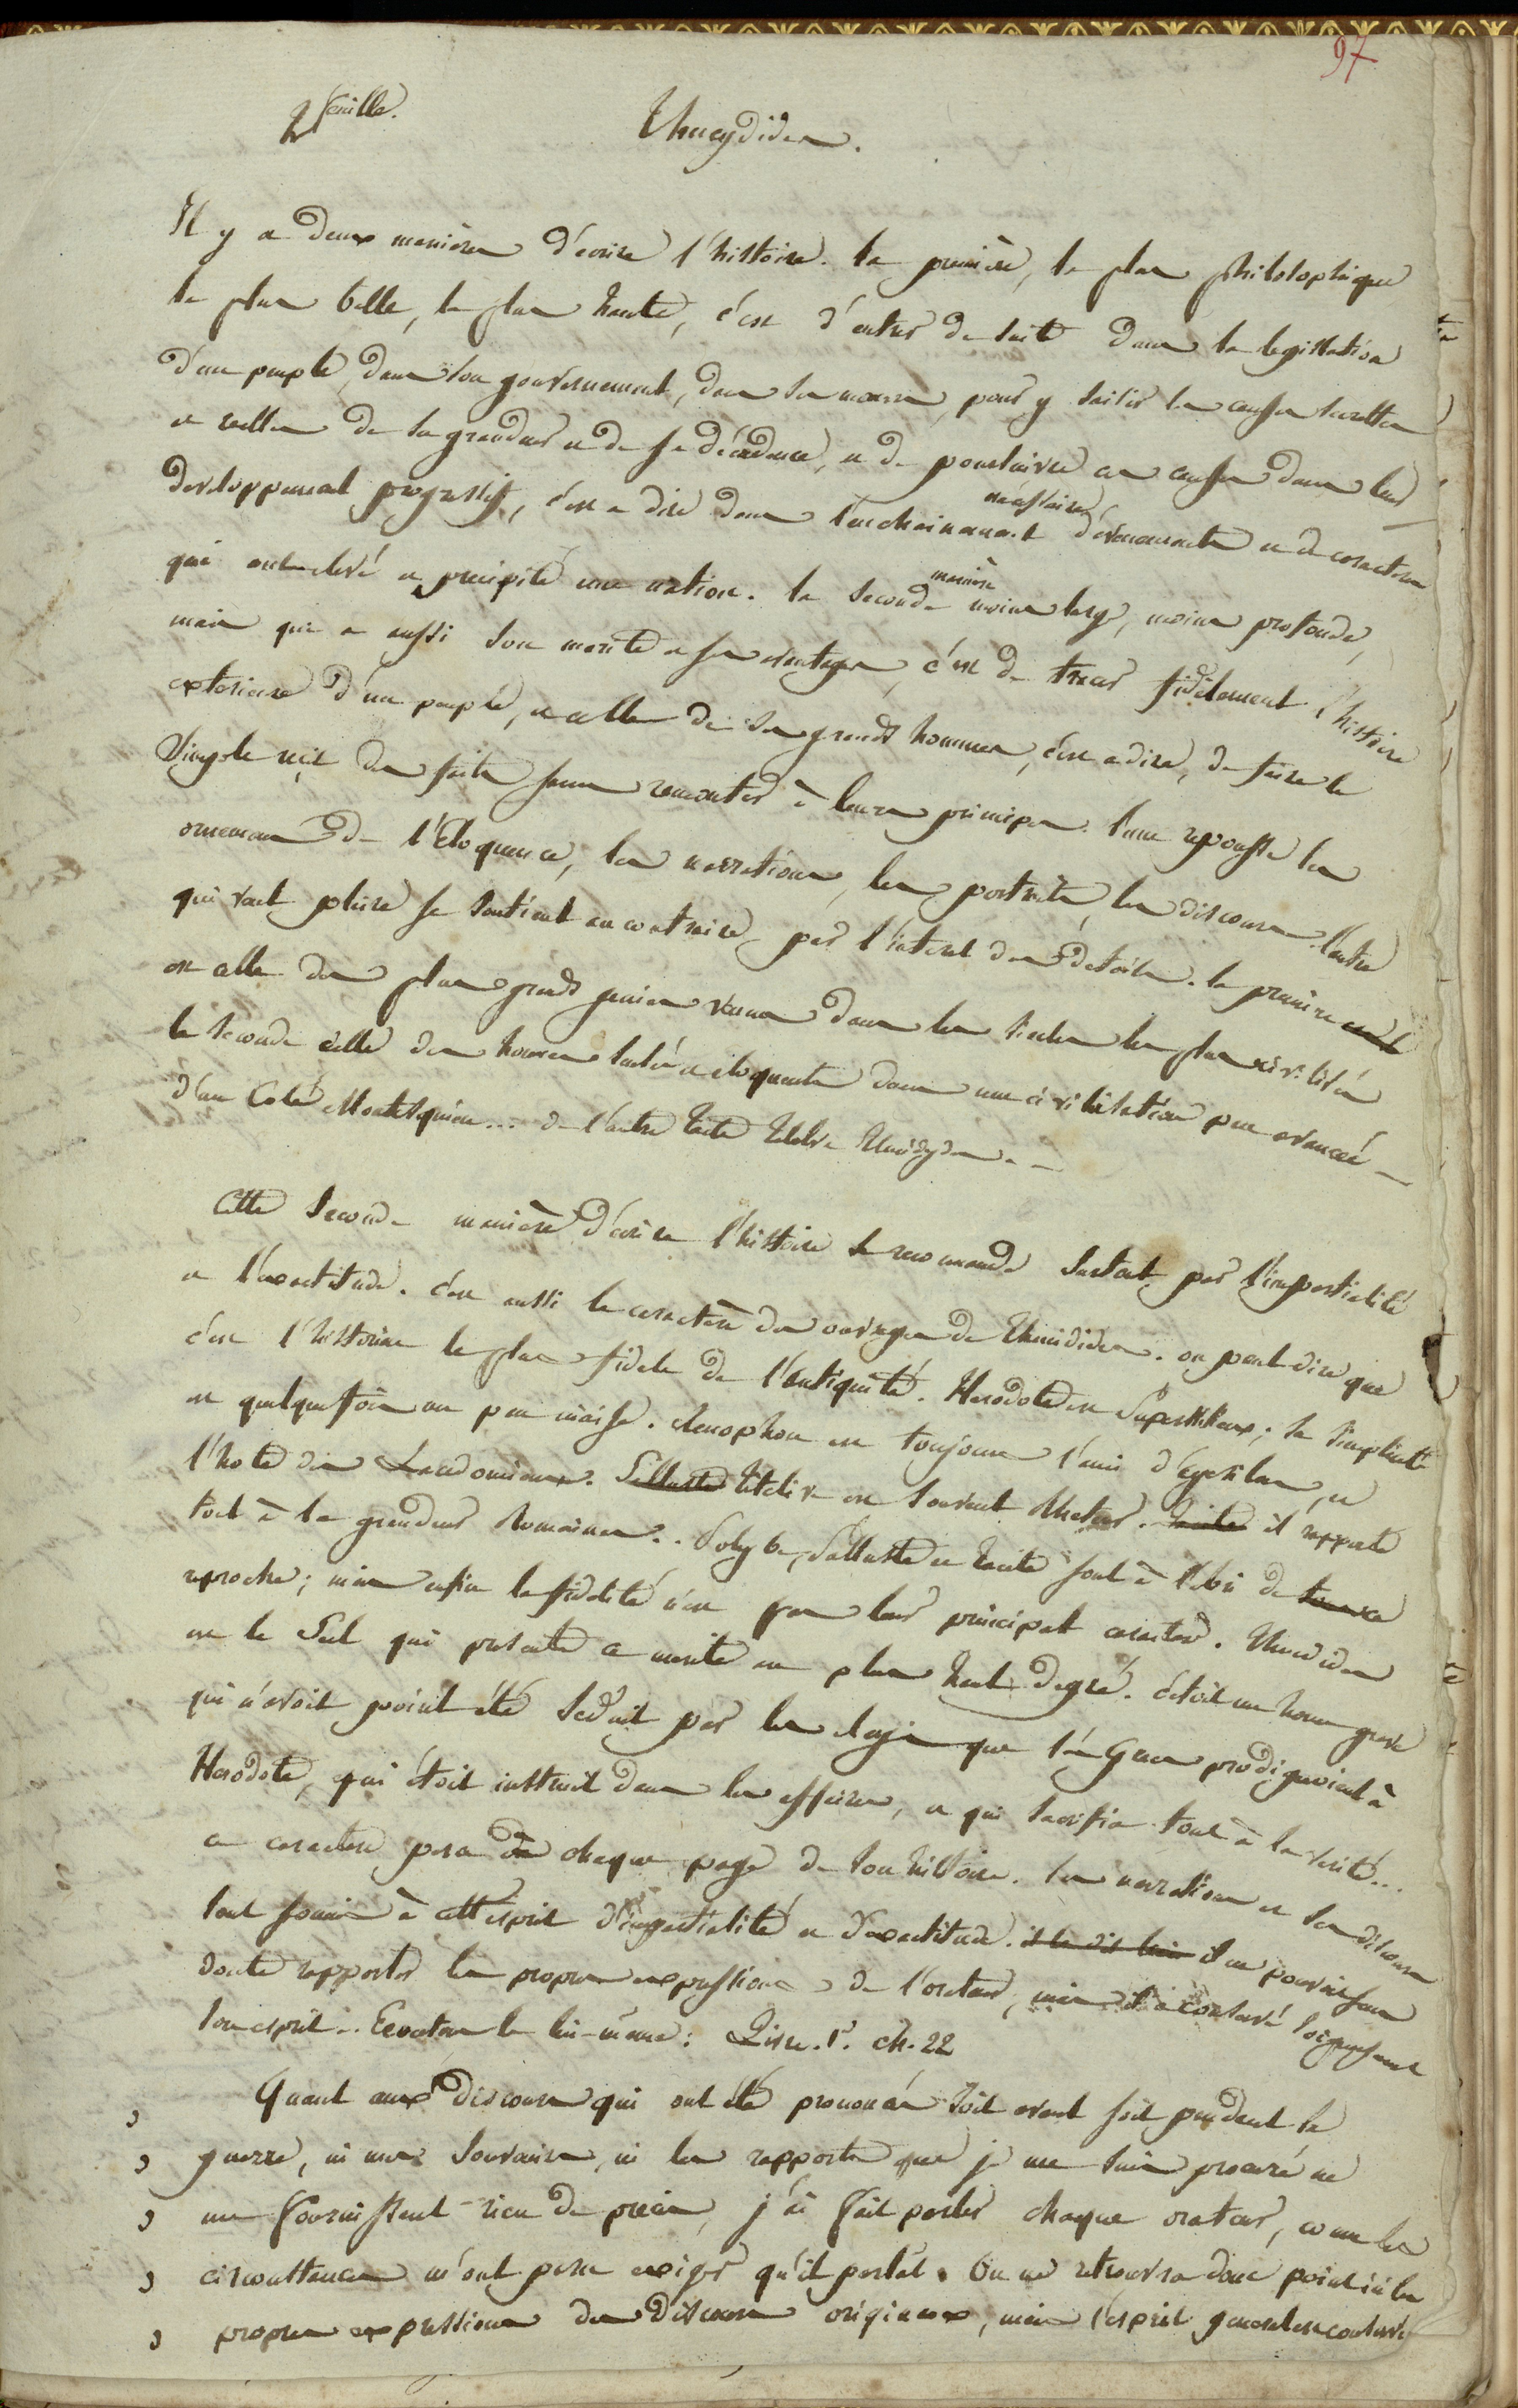 97
2 feuille.
Thucydides.
Il y a deux manieres d'écrire l'histoire. la premiere, la plus philosophique
la plus belle, la plus haute, c'est d'entrer de suite dans la legislation
d'un peuple, dans son gouvernement, dans ses mœurs, pour y saisir les causes secrettes
et reelles de sa grandeur et de sa décadence, et de poursuivre ces causes dans leur
developpement progressif, c'est a dire dans l'enchainement necessaire d'évenements et de caracteres
qui ont elevé et precipité une nation. la seconde maniere moins large, moins profonde,
mais qui a aussi son merite et ses avantages, c'est de tracer fidèlement l'histoire
exterieure d'un peuple, et celle de ses grands hommes, c'est a dire, de faire le
simple recit des faits sans remonter à leurs principes. l'une repousse les
ornemens de l'Eloquence, les narrations, les portraits, les discours. l'autre
qui veut plaire se soutient au contraire par l'interet des details. la premiere
est celle des plus grands genies venus dans les siecles les plus civilisés
la seconde celle des hommes sensés et eloquents dans une civilisation peu avancée —
d'un coté Montesquieu... de l'autre Tacite Titelive Thucidydes. —
Cette seconde manière d'écrire l'histoire se recomande surtout par l'impartialité
et l'exactitude. c'est aussi le caractère des ouvrages de Thucidides. on peut dire que
c'est l'historien le plus fidele de l'antiquité. Herodote est superstitieux; sa simplicité
est quelquefois un peu niaise. Xenophon est toujours l'ami d'Agesilas, et
l'hote des Lacedomiens. Salluste Titelive est souvent Rheteur. Tacite il rapporte
tout à la grandeur Romaine. . Polybe, Salluste et Tacite sont à l'abri de
reproche; mais enfin la fidelité n'est pas leur principal caractere. Thucidides
est le seul qui presente ce merite au plus haut degré. C'etoit un homme grave
qui n'avoit point été seduit par les eloges que les Grecs prodiguoient à
Herodote, qui étoit instruit dans les affaires, et qui sacrifia tout à la verité...
ce caractere perce à chaque page de son histoire. les narrations et les discours
sont soumis à cet esprit d'impartialité et d'exactitude. il le dit lui il ne pouvoit sans
doute rapporter les propres expressions de l'orateur, mais il a conservé soigneusement
son esprit. . Ecoutons le lui-même: Livre. 1er. ch. 22
" Quant aux discours qui ont été prononcés soit avant soit pendant la
" guerre, ni mes souvenirs, ni les rapports que je me suis procuré ne
" me fournissent rien de precis, j'ai fait parler chaque orateur, comme les
" circonstances m'ont paru exiger qu'il parlât. On ne retrouvera donc point ici les
" propres expressions des discours originaux, mais l'esprit general est conservé